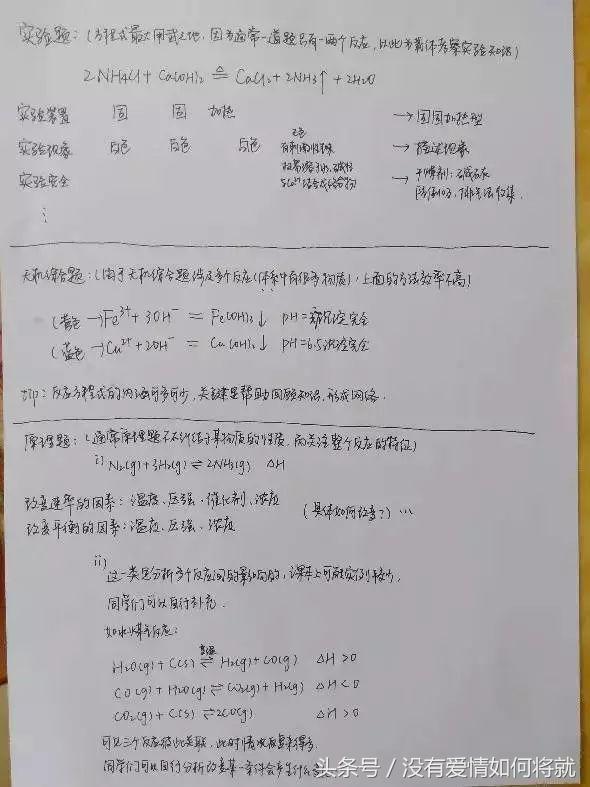 实验题：（方程式最大用武之地，因为通常一道题只有一两个反应，以此为载体考察实验知识）
2NH4Cl + Ca(OH)₂ ≜ CaCl₂ + 2NH₃↑ + 2H₂O
实验装置 固 固 加热 → 固固加热型
实验现象 白色 白色 白色 无色 有刺激性气味 → 描述现象
实验安全 极易溶于水，碱性 → 干燥剂：碱石灰
防倒吸，排空法收集
⋮
无机综合题：（由于无机综合题涉及多个反应（体系中有很多物质），上面的方法效率不高）
（黄色→）Fe³⁺ + 3OH⁻ = Fe(OH)₃↓ pH= 沉淀完全
（蓝色→）Cu²⁺ + 2OH⁻ = Cu(OH)₂↓ pH=6.5沉淀完全
tip：反应方程式的内涵可多可少，关键是帮助回顾知识，形成网络．
原理题：（通常原理题不纠结于某物质的性质，而关注整个反应的特征）
i) N₂(g)+3H₂(g)⇌2NH₃(g) ΔH
改变速率的因素：温度、压强、催化剂、浓度
改变平衡的因素：温度、压强、浓度 （具体如何改变？）…
ii)
这一类是分析多个反应间的影响的，课本上可能实例较少．
同学们可以自行补充．
如水煤气反应：
H₂O(g) + C(s) 高温⇌ H₂(g)+CO(g) ΔH >0
CO(g) + H₂O(g) ⇌ CO₂(g) + H₂(g) ΔH <0
CO₂(g) + C(s) ⇌ 2CO(g) ΔH >0
可见三个反应彼此关联，此时情况复杂得多．
同学们可以自行分析改变某一条件会产生什么
头条号 / 没有爱情如何将就